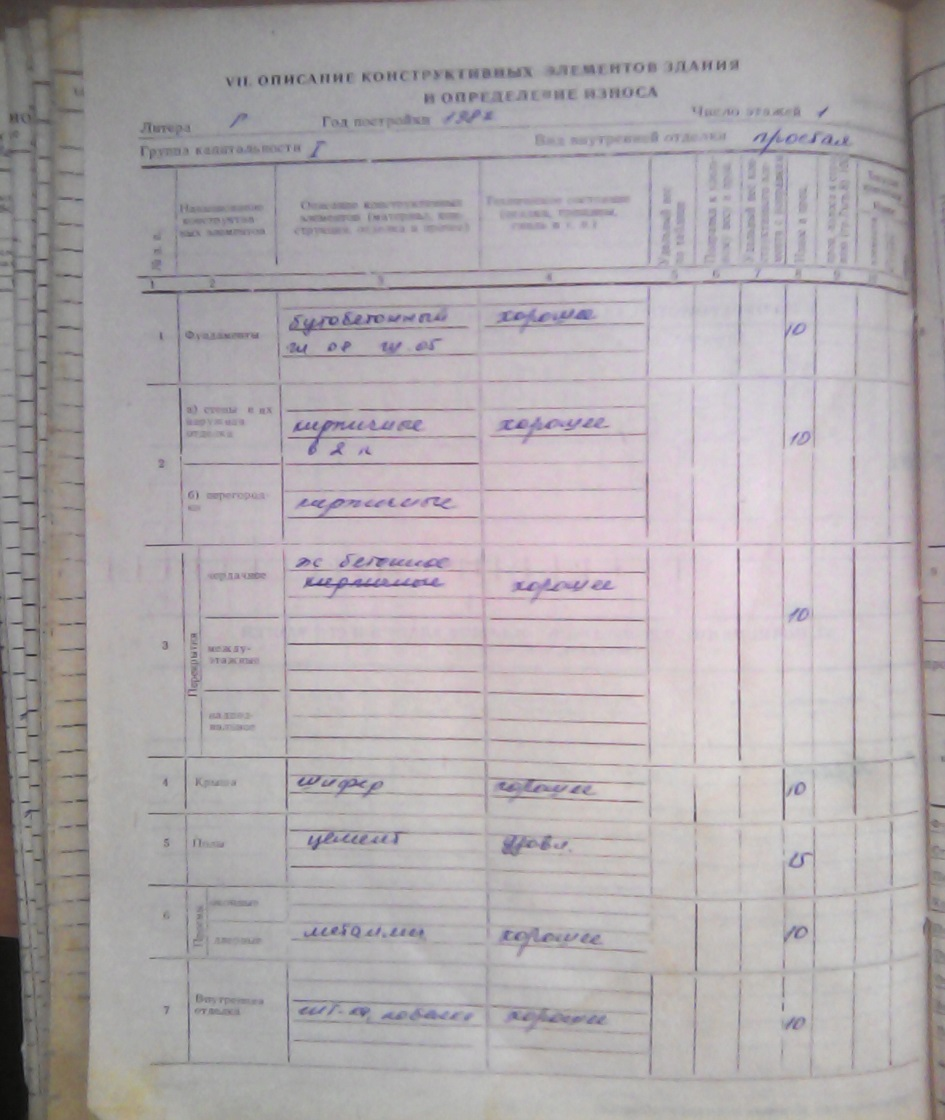 VII. ОПИСАНИЕ КОНСТРУКТИВНЫХ ЭЛЕМЕНТОВ ЗДАНИЯ
И ОПРЕДЕЛЕНИЕ ИЗНОСА
Литера Р Год постройки Число этажей 1
Группа капитальности I Вид внутренней отделки простая
№ п. п.
Наименование конструктив-
ных элементов
Описание конструктивных
элементов (материал, кон-
струкция, отделка и прочее)
Техническое состояние
(осадка, трещины,
гниль и т. п.)
Удельный вес
по таблице
Износ в проц.
1 2 3 4 5 6 7 8 9
1 Фундаменты бутобетонный хорошее 10
ш 08 гл 05
2 а) стены и их
наружная
отделка
кирпичные хорошее 10
в 2 к
б) перегород-
ки
кирпичные
3 Перекрытия
чердачное ж бетонное
кирпичные хорошее 10
между-
этажные
надпод-
вальное
4 Крыша шифер хорошее 10
5 Полы цемент удовл. 15
6 Проемы
оконные
дверные металлич хорошее 10
7 Внутренняя
отделка
шт-ка, побелка хорошее 10